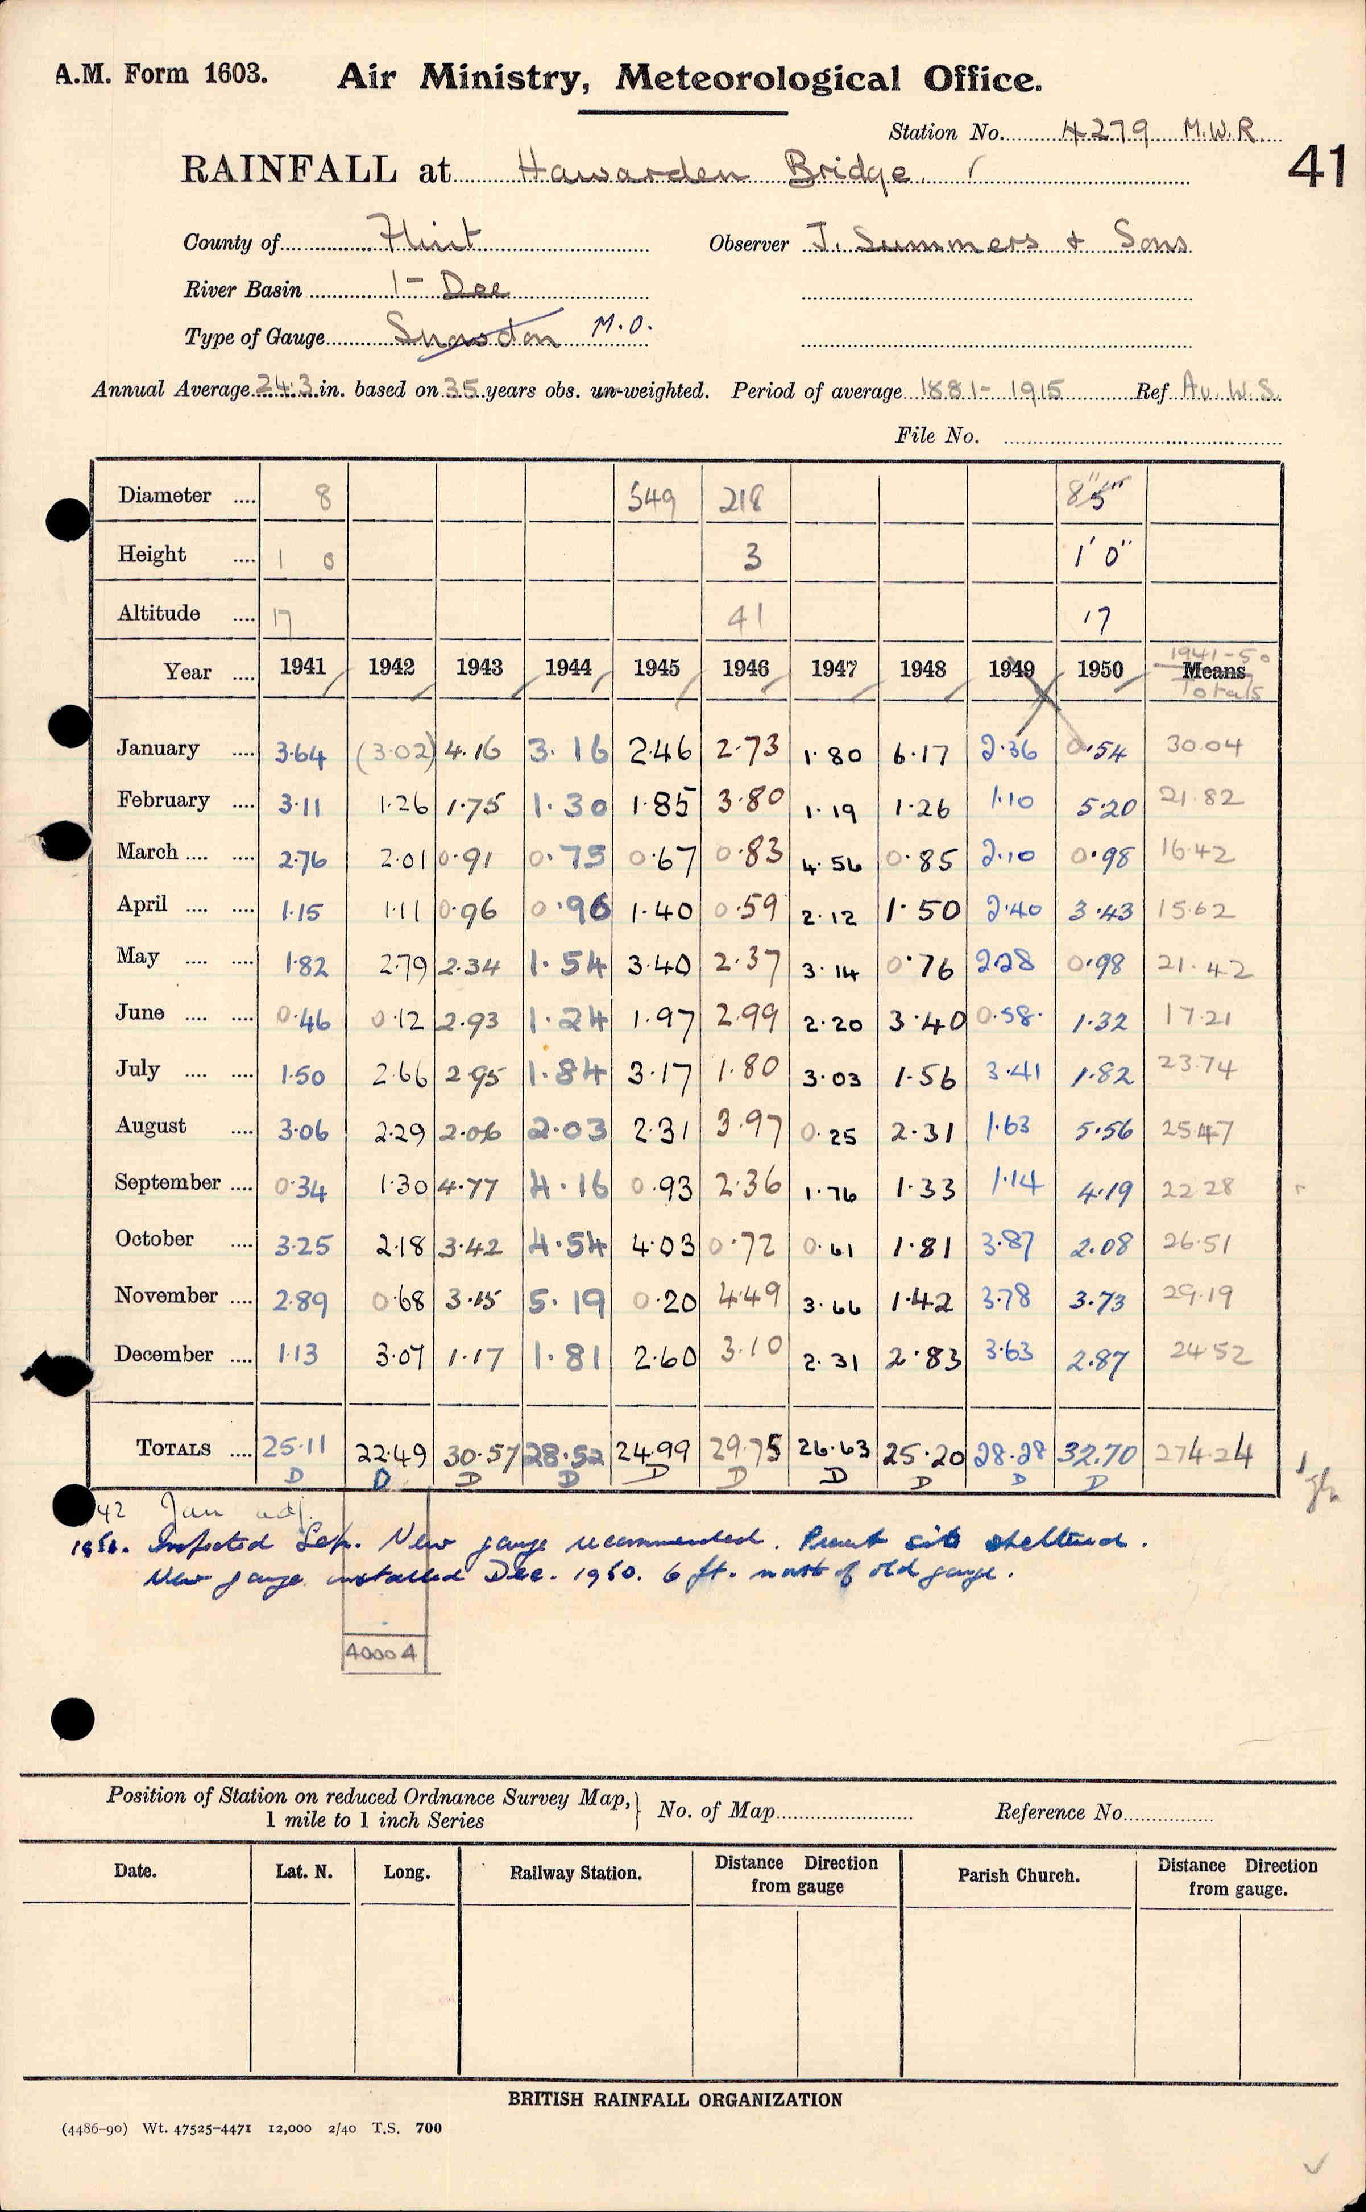 A.M. Form 1603. Air Ministry, Meteorological Office.
Station No. 4279 M.W.R.
41
RAINFALL at Hawarden Bridge
County of Flint Observer J. Summers + Sons
River Basin 1- Dee
Type of Gauge Snowdon M.O.
Annual Average 24.3 in. based on 35 years obs. un-weighted. Period of average 1881-1915 Ref Av. W.S.
File No.
Diameter 8 549 218 8" 5"
Height 1 0 3 1' 0"
Altitude 17 41 17
Year 1941 1942 1943 1944 1945 1946 1947 1948 1949 1950 1941-50 Means Totals
January 3.64 (3.02) 4.16 3.16 2.46 2.73 1.80 6.17 2.36 0.54 30.04
February 3.11 1.26 1.75 1.30 1.85 3.80 1.19 1.26 1.10 5.20 21.82
March 2.76 2.01 0.91 0.75 0.67 0.83 4.56 0.85 2.10 0.98 16.42
April 1.15 1.11 0.96 0.96 1.40 0.59 2.12 1.50 2.40 3.43 15.62
May 1.82 2.79 2.34 1.54 3.40 2.37 3.14 0.76 2.28 0.98 21.42
June 0.46 0.12 2.93 1.24 1.97 2.99 2.20 3.40 0.58 1.32 17.21
July 1.50 2.66 2.95 1.84 3.17 1.80 3.03 1.56 3.41 1.82 23.74
August 3.06 2.29 2.06 2.03 2.31 3.97 0.25 2.31 1.63 5.56 25.47
September 0.34 1.30 4.77 4.16 0.93 2.36 1.76 1.33 1.14 4.19 22.28
October 3.25 2.18 3.42 4.54 4.03 0.72 0.61 1.81 3.87 2.08 26.51
November 2.89 0.68 3.15 5.19 0.20 4.49 3.66 1.42 3.78 3.73 29.19
December 1.13 3.07 1.17 1.81 2.60 3.10 2.31 2.83 3.63 2.87 24.52
TOTALS 25.11 22.49 30.57 28.52 24.99 29.75 26.63 25.20 28.28 32.70 274.24
D D D D D D D D D D
42 Jan adj.
1950. Inspected Sep. New gauge recommended. Present site sheltered.
New gauge installed Dec. 1950. 6 ft. north of old gauge.
40004
Position of Station on reduced Ordnance Survey Map, 1 mile to 1 inch Series } No. of Map Reference No.
Date. Lat. N. Long. Railway Station. Distance Direction from gauge Parish Church. Distance Direction from gauge.
BRITISH RAINFALL ORGANIZATION
(4486-90) Wt. 47525-4471 12,000 2/40 T.S. 700